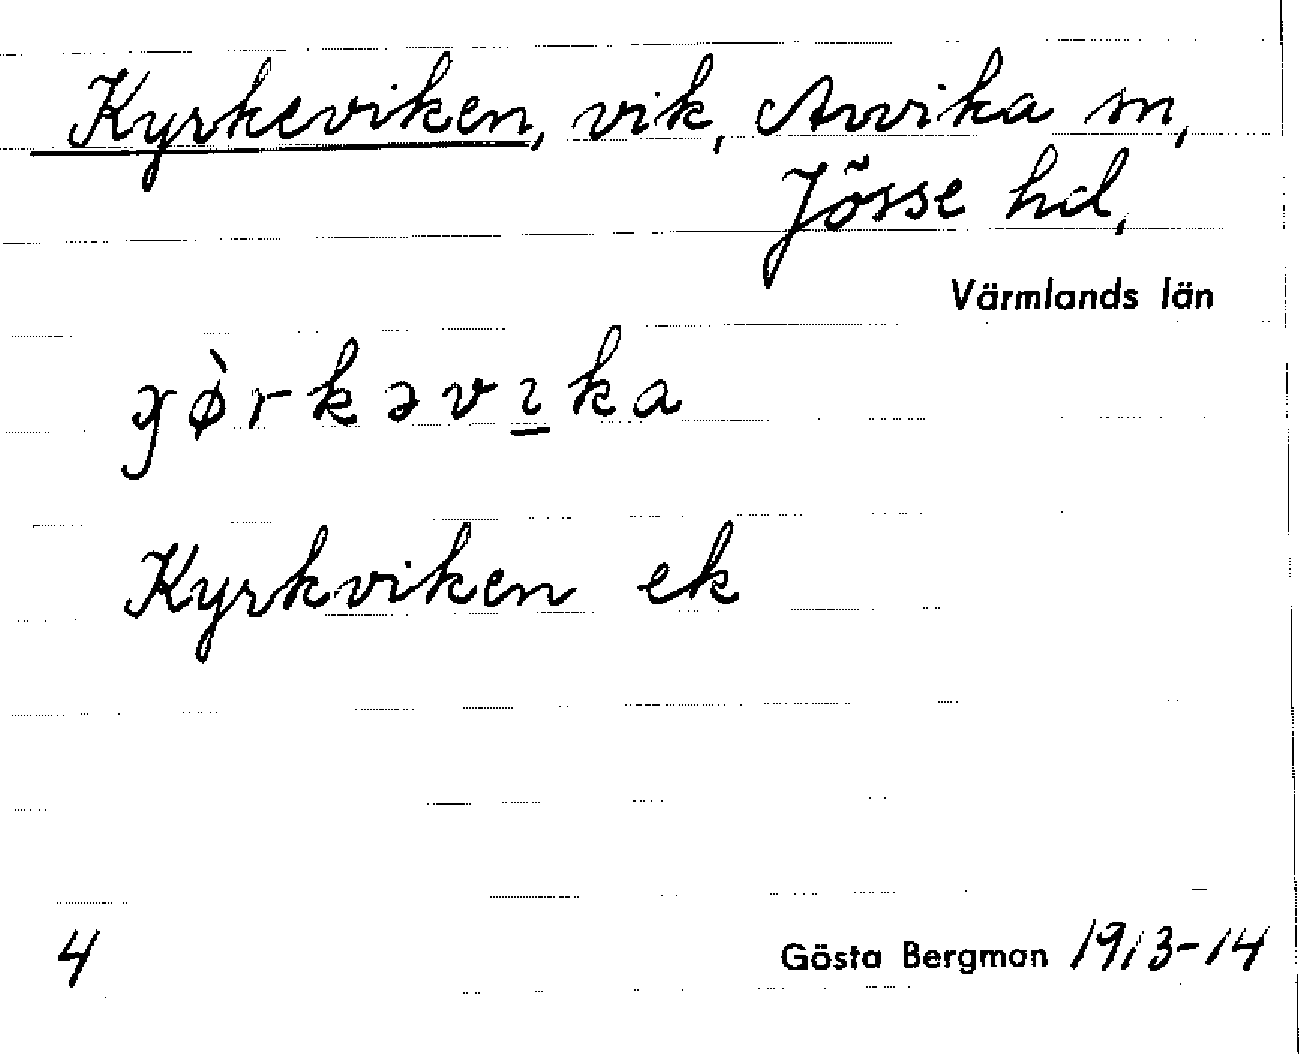 Kyrkeviken, vik, Arvika sn,
Jösse hd,
Värmlands län
Kyrkviken ek
4
Gösta Bergman 1913-14